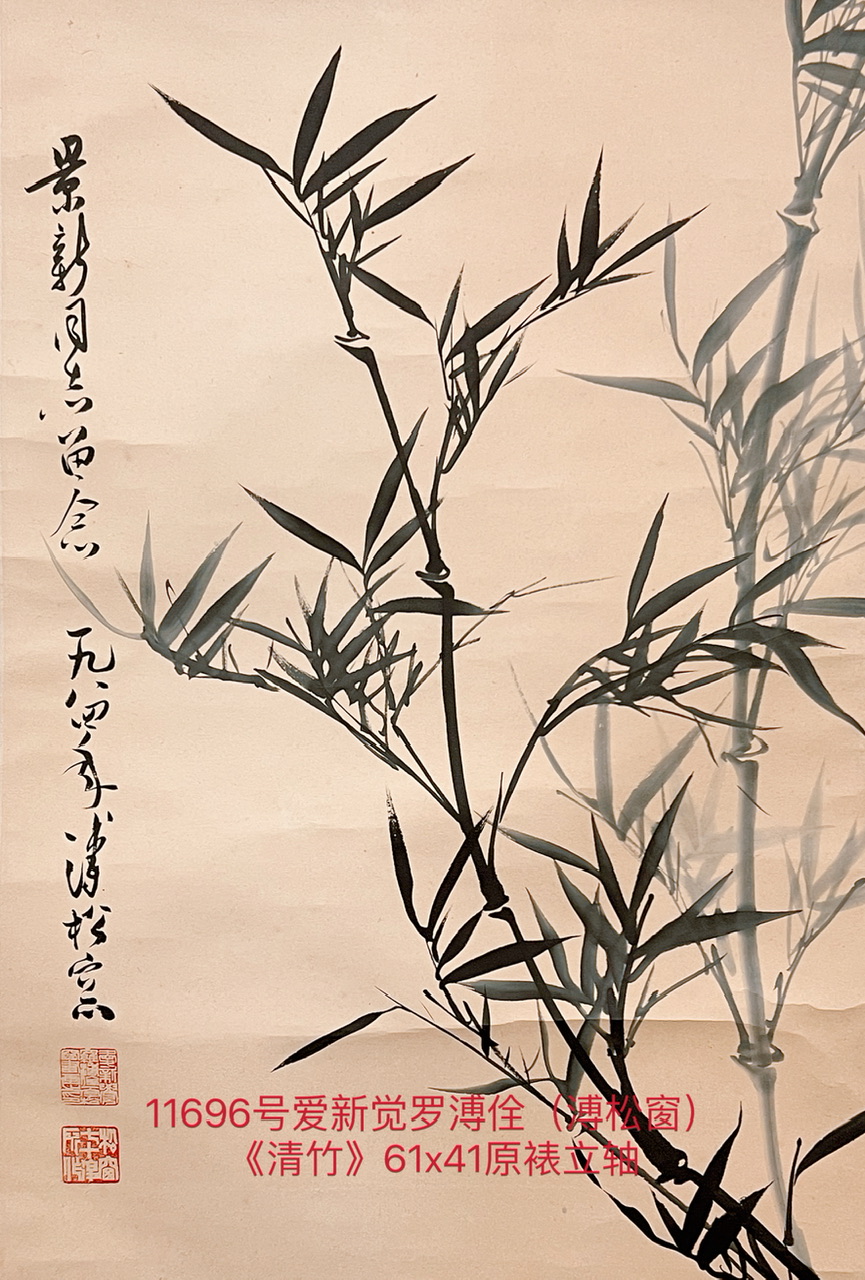 景新同志留念
一九八四年溥松窗
11696号爱新觉罗溥佺（溥松窗）
《清竹》61x41原裱立轴